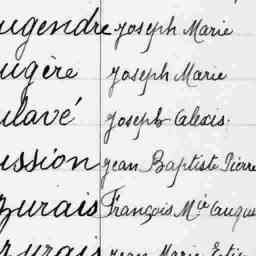 ugendre Joseph Marie
ugère Joseph Marie
ulavé Joseph Alexis.
ussion Jean Baptiste Pierre
zurais François Mie Augus
zurais Jean Marie Etie